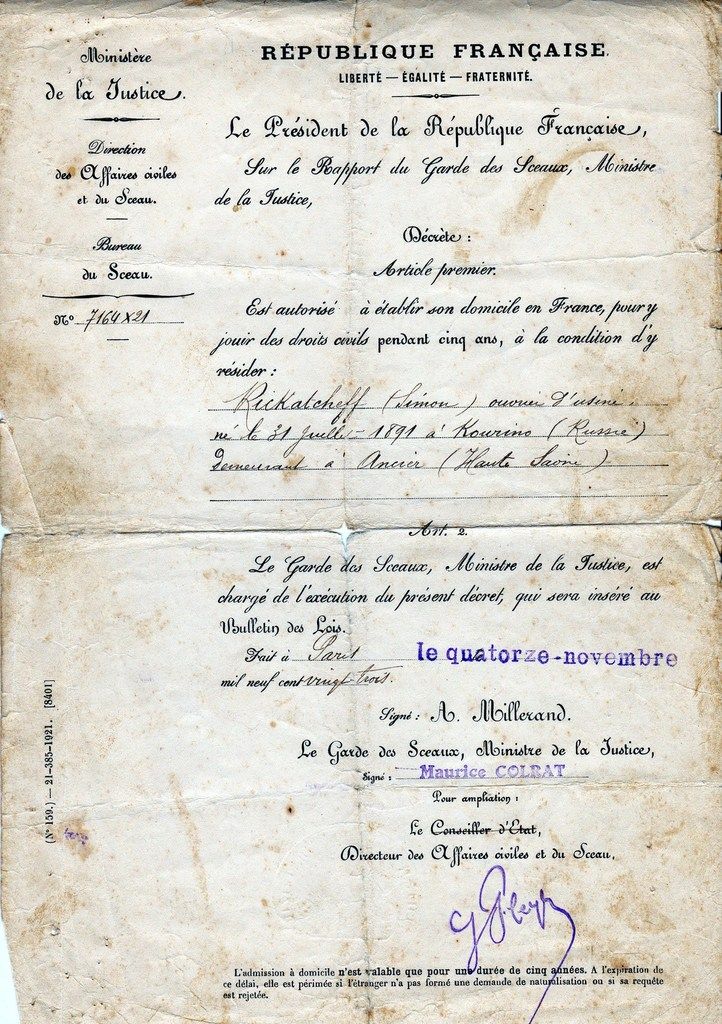 Ministère
de la Justice.
Direction
des Affaires civiles
et du Sceau.
Bureau
du Sceau.
N° 7164 X 21
RÉPUBLIQUE FRANÇAISE.
LIBERTÉ — ÉGALITÉ — FRATERNITÉ.
Le Président de la République Française,
Sur le Rapport du Garde des Sceaux, Ministre
de la Justice,
Décrète :
Article premier.
Est autorisé à établir son domicile en France, pour y
jouir des droits civils pendant cinq ans, à la condition d'y
résider :
Rickatcheff (Simon) ouvrier d'usine,
né le 31 Juillet 1891 à Kourino (Russie)
Demeurant à Ancier (Haute Saône)
Art. 2.
Le Garde des Sceaux, Ministre de la Justice, est
chargé de l'exécution du présent décret, qui sera inséré au
Bulletin des Lois.
Fait à Paris le quatorze-novembre
mil neuf cent vingt-trois.
Signé : A. Millerand.
Le Garde des Sceaux, Ministre de la Justice,
Signé : Maurice COLRAT
Pour ampliation :
Le Conseiller d'Etat,
Directeur des Affaires civiles et du Sceau,
L'admission à domicile n'est valable que pour une durée de cinq années. A l'expiration de
ce délai, elle est périmée si l'étranger n'a pas formé une demande de naturalisation ou si sa requête
est rejetée.
(N° 159.) — 21-385-1921. [8401]